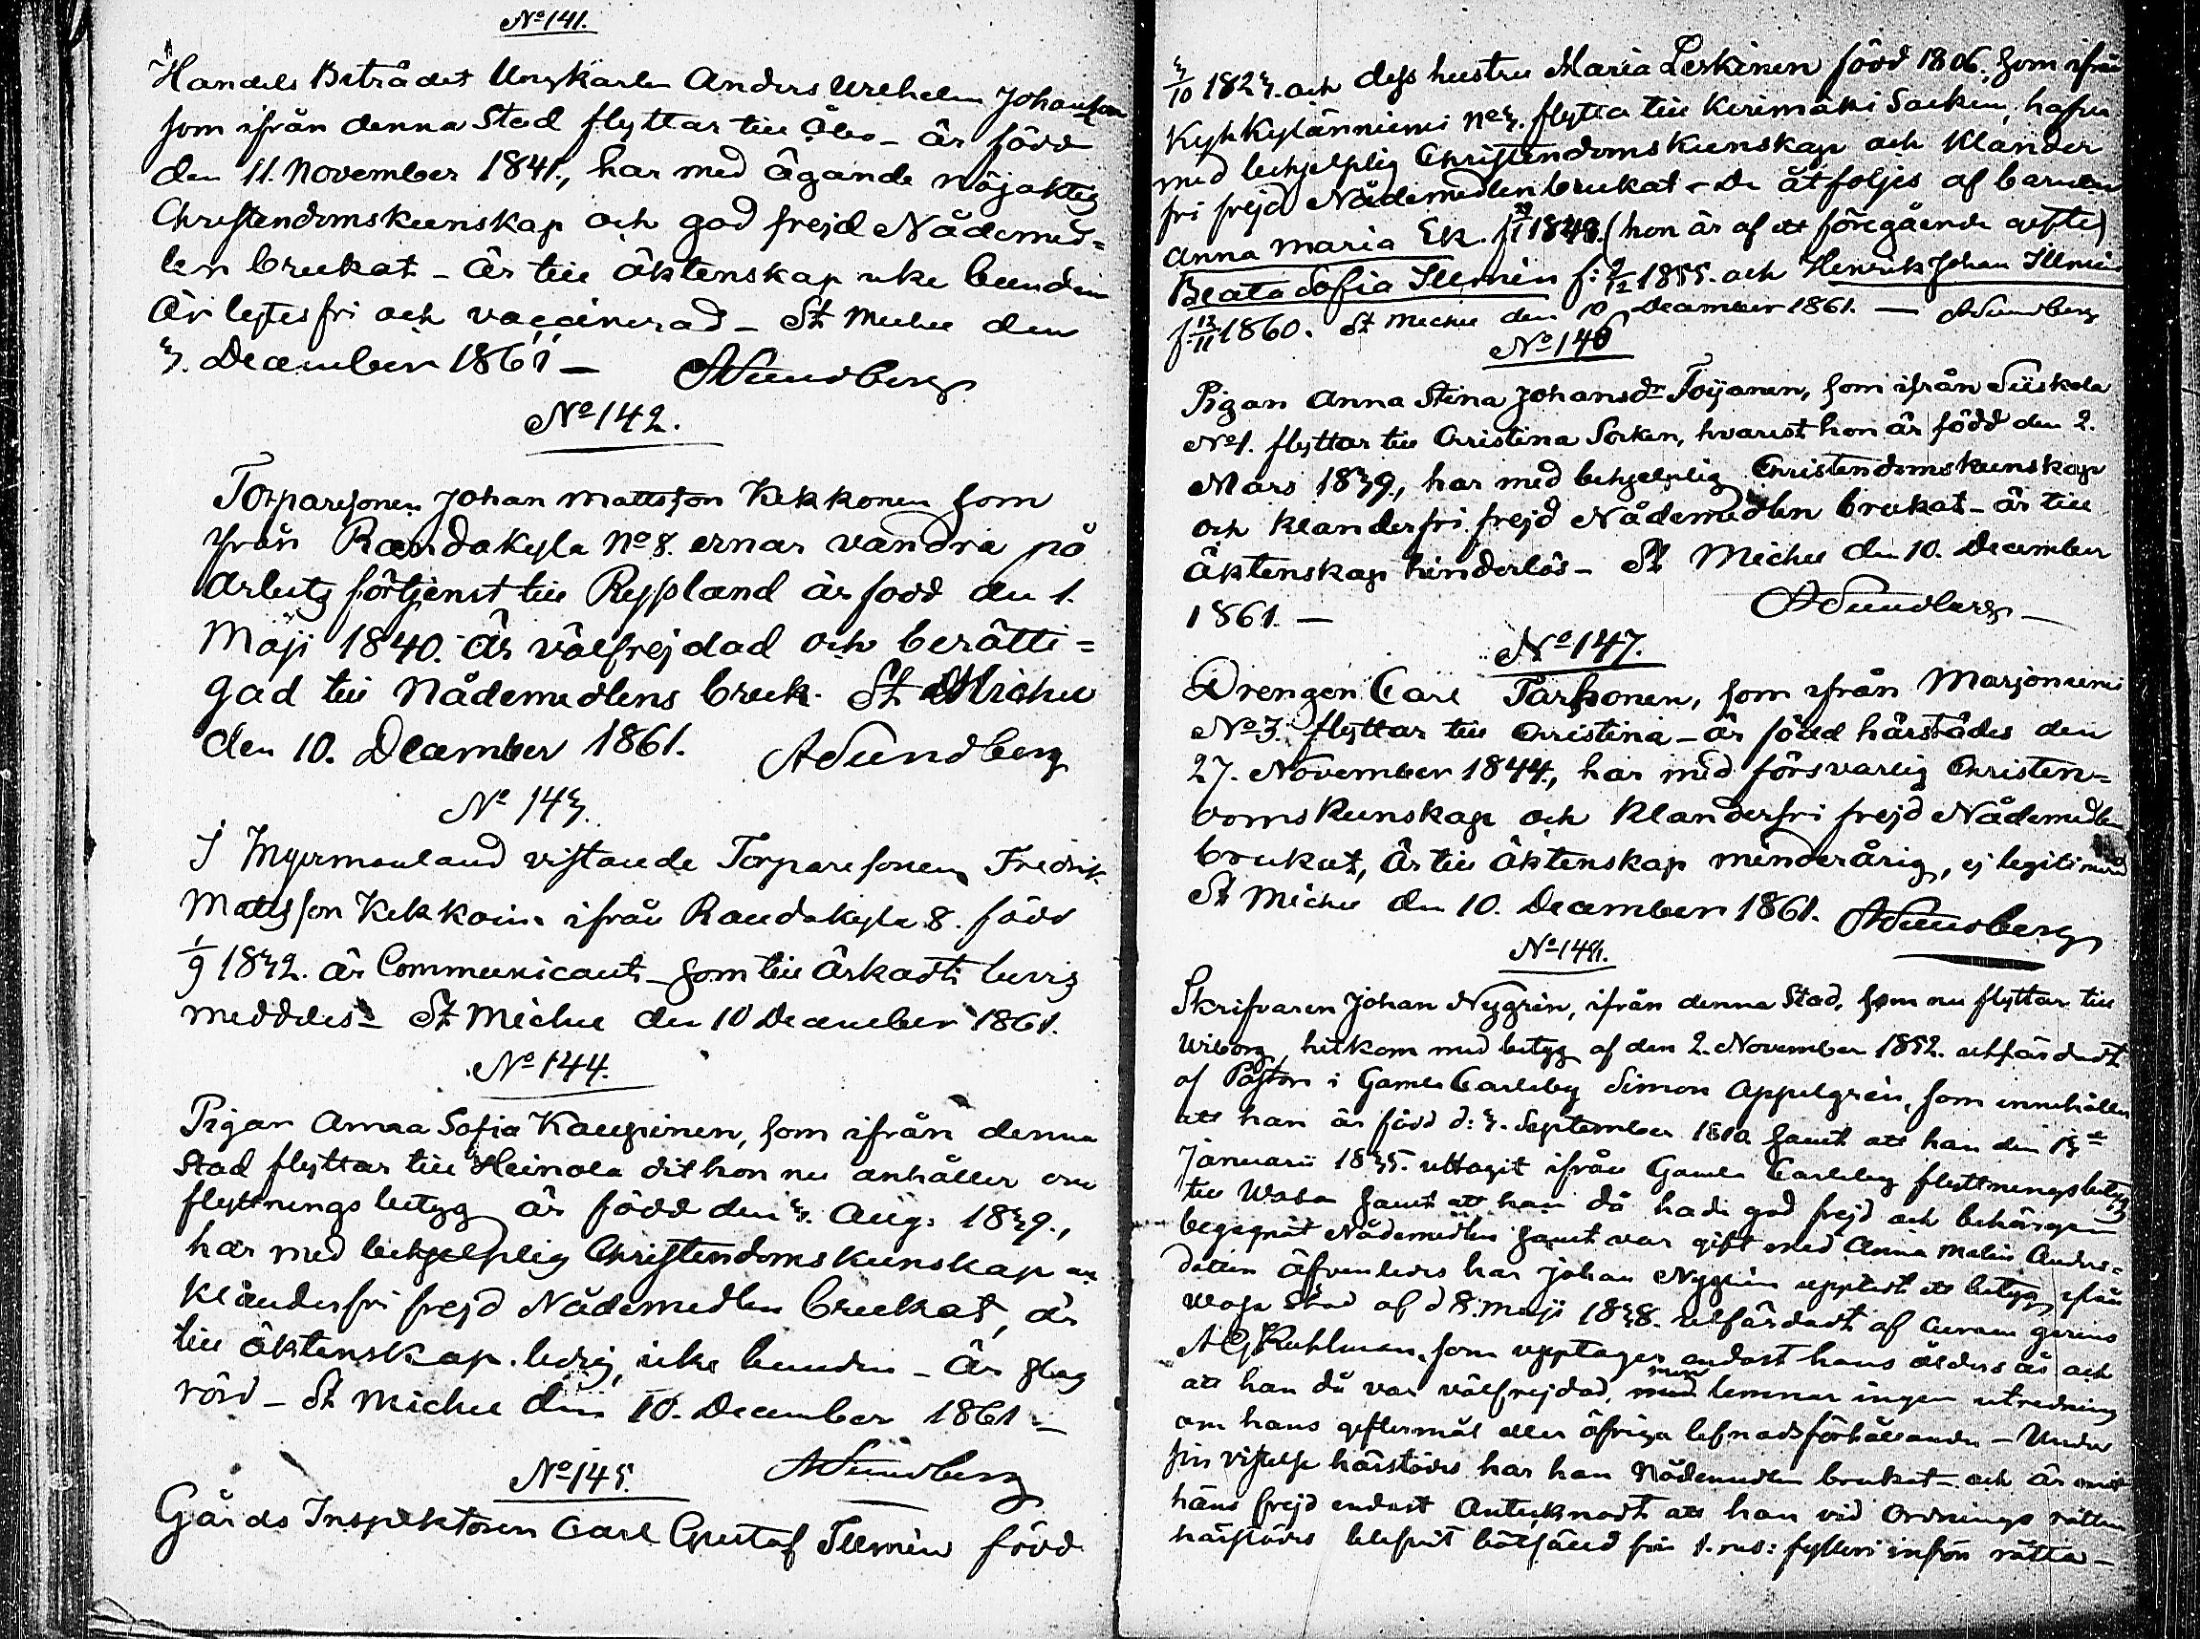 No 141.
Handels Beträdet Ungkarlen Anders Wilhelm Johansson
som ifrån denna Stad flyttar till Åbo – är född
den 11. November 1841., har med ägande nöjaktig
Christendomskunskap och god frejd Nådemed=
len brukat – Är till äktenskap icke bunden
Är lytesfri och vaccinerad – St Michel den
3. December 1861 – ASundberg
No 142.
Torparesonen Johan Mattsson Kekkonen som
ifrån Randakyla No 8. ernar vandra på
arbets förtjenst till Ryssland är född den 1.
Maji 1840. Är välfrejdad och berätti=
gad till Nådemedlens bruk. St Michel
den 10. December 1861. ASundberg
No 143.
I Ingermanland vistande Torparesonen Fredrik
Mattsson Kekkoin. ifrån Randakyla 8. född
1/9 1832. är Communicant – som till äskadt bevis
meddeles – St Michel den 10 December 1861.
No 144.
Pigan Anna Sofia Kaupinen, som ifrån denna
Stad flyttar till Heinola dit hon nu anhåller om
flyttningsbetyg är född den 3. Aug. 1839.,
har med behjelplig Christendomskunskap och
klanderfri frejd Nådemedlen brukat, är
till äktenskap ledig, icke bunden – Är
St Michel den 10. December 1861 –
No 145. ASundberg
Gårds Inspektoren Carl Gustaf Illmén född
3/10 1823. och dess hustru Maria Leskinen född 1806. som ifrån
Kyhkylänniemi No 3. flytta till Kerimäki Socken, hafva
med behjelplig Christendomskunskap och klander
fri frejd Nådemedlen brukat – De åtföljes af barnen
Anna Maria Ek. (hon är af ett föregående gifte)
Beata Sofia Illmén f: 9/12 1855. och Henrik Johan Illmén
f. 12/11 1860. St Michel den 10 December 1861. – ASundberg
No 146
Pigan Anna Stina Johansdr Toijanen, som ifrån Siiskola
No 1. flyttar till Christina Socken, hvarest hon är född den 2.
Mars 1839., har med behjelplig Christendomskunskap
och klanderfri frejd Nådemedlen brukat – är till
äktenskap hinderlös – St Michel den 10. December
1861. – ASundberg –
No 147.
Drengen Carl Tarssonen, som ifrån Marjoniemi
No 3. flyttar till Christina – är född härstädes den
27. November 1844., har med försvarlig Christen=
domskunskap och klanderfri frejd Nådemedlen
brukat, Är till äktenskap minderårig, ej legitimerad
St Michel den 10. December 1861. ASundberg
No 148.
Skrifvaren Johan Nygrén, ifrån denna Stad, som nu flyttar till
Wiborg, hitkom med betyg af den 2. November 1852. utfärdadt
af Pastorn i Gamla Carleby Simon Appelgrén, som innehåller
att han är född d: 3. September 1810 samt att han den 13de
Januarii 1835. uttagit ifrån Gamla Carleby flyttningsbetyg
till Wasa samt att han då hade god frejd och behörigen
begagnat Nådemedlen samt var gift med Anna Malin Anders=
dotter äfvenledes har Johan Nygrén upptedt ett betyg ifrån
Wasa Stad af d 8. Maji 1838. utfärdadt af Curam gerens
A G Kuhlman, som upptager endast hans ålders år och
att han då var välfrejdad, men lemnar ingen utredning
om hans giftermål eller öfriga lefnadsförhållanden – Under
sin vistelse härstädes har han Nådemedlen brukat – och är om
hans frejd endast Antecknadt att han vid Ordnings rätten
härstädes blifvit bötfäld för 1. res: fylleri inför rätta –